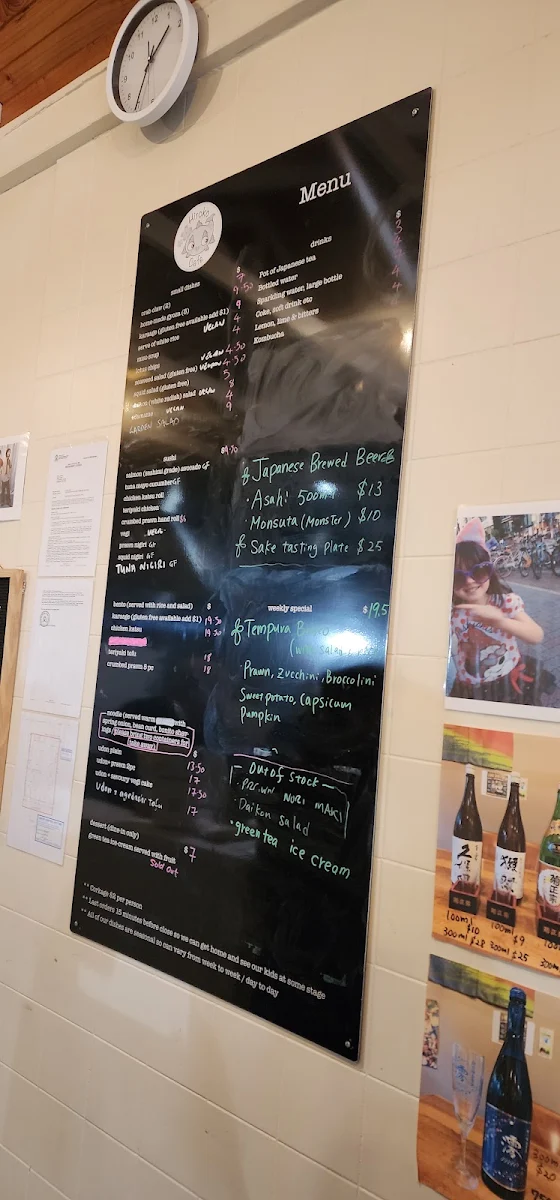 Hiroko
Café
Menu
small dishes
$
crab claw (2)
7
home made gyoza (5)
9.50
karaage (gluten free available add $1)
9
serve of white rice
4
miso soup
VEGAN
4
lotus chips
seaweed salad (gluten free)
squid salad (gluten free)
5
daikon (white radish) salad
edamame
VEGAN
GARDEN SALAD
drinks
$
Pot of Japanese tea
3
Bottled water
Sparkling water, large bottle
Coke, soft drink etc
Lemon, lime & bitters
Kombucha
sushi
$9.50
salmon (sashimi grade) avocado GF
tuna mayo cucumber GF
chicken katsu roll
teriyaki chicken
crumbed prawn hand roll
vegi
prawn nigiri GF
squid nigiri GF
TUNA NIGIRI GF
Japanese Brewed Beer
· Asahi 500ml $13
· Monsuta (Monster) $10
Sake tasting plate $25
bento (served with rice and salad)
$
karaage (gluten free available add $1)
19.50
chicken katsu
19.50
teriyaki tofu
18
crumbed prawn 5 pc
18
weekly special
$19.5
Tempura
· Prawn, Zucchini, Broccolini
Sweet potato, Capsicum
Pumpkin
noodle (served warm with
spring onion, bean curd, bonito shav-
ings (please bring two containers for
take away)
$
udon plain
13.50
udon+ prawn 2pc
17
udon + savoury vegi cake
17.50
Udon + Agedashi Tofu
17
— Out of Stock —
· Prawn NORI MAKI
· Daikon salad
· green tea ice cream
dessert (dine in only)
green tea ice cream served with fruit
$7
Sold Out
** Corkage $2 per person
** Last orders 15 minutes before close so we can get home and see our kids at some stage
** All of our dishes are seasonal so can vary from week to week / day to day
100ml
$10
300ml $28
100ml $9
300ml $25
300ml